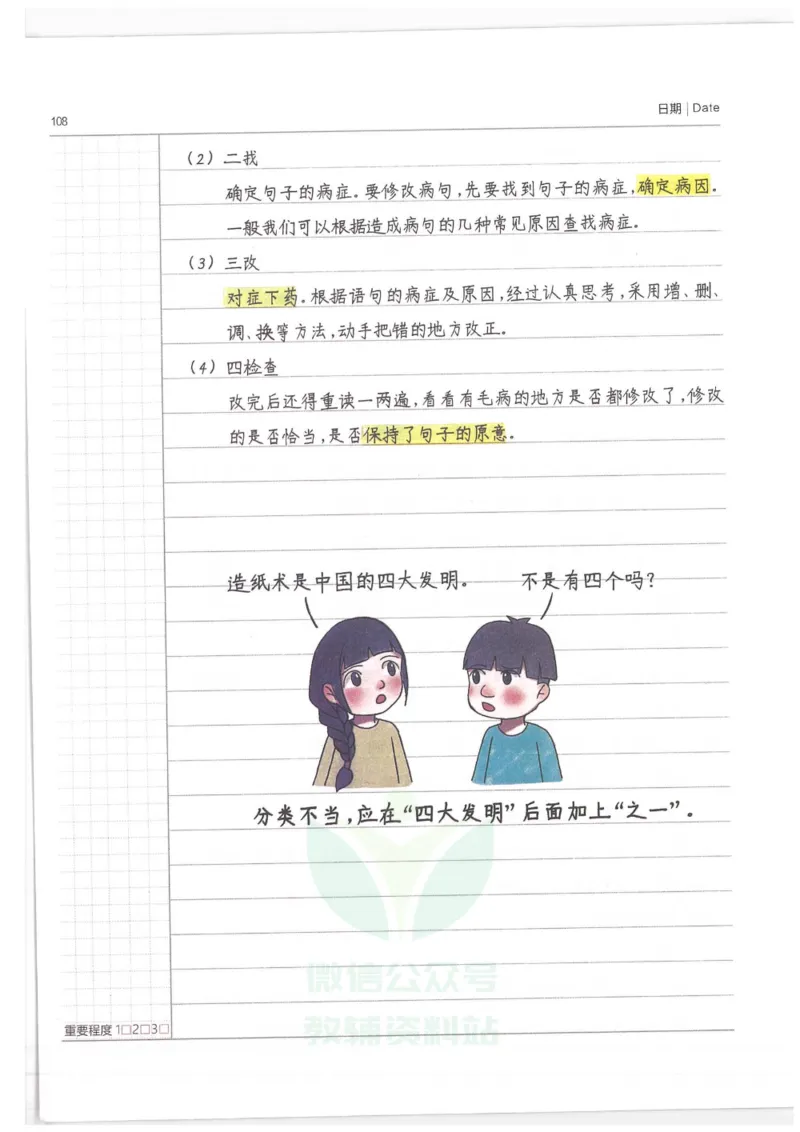 108
日期 | Date
（2）二找
确定句子的病症。要修改病句，先要找到句子的病症，确定病因。
一般我们可以根据造成病句的几种常见原因查找病症。
（3）三改
对症下药。根据语句的病症及原因，经过认真思考，采用增、删、
调、换等方法，动手把错的地方改正。
（4）四检查
改完后还得重读一两遍，看看有毛病的地方是否都修改了，修改
的是否恰当，是否保持了句子的原意。
造纸术是中国的四大发明。
不是有四个吗？
分类不当，应在“四大发明”后面加上“之一”。
微信公众号
教辅资料站
重要程度 1□2□3□